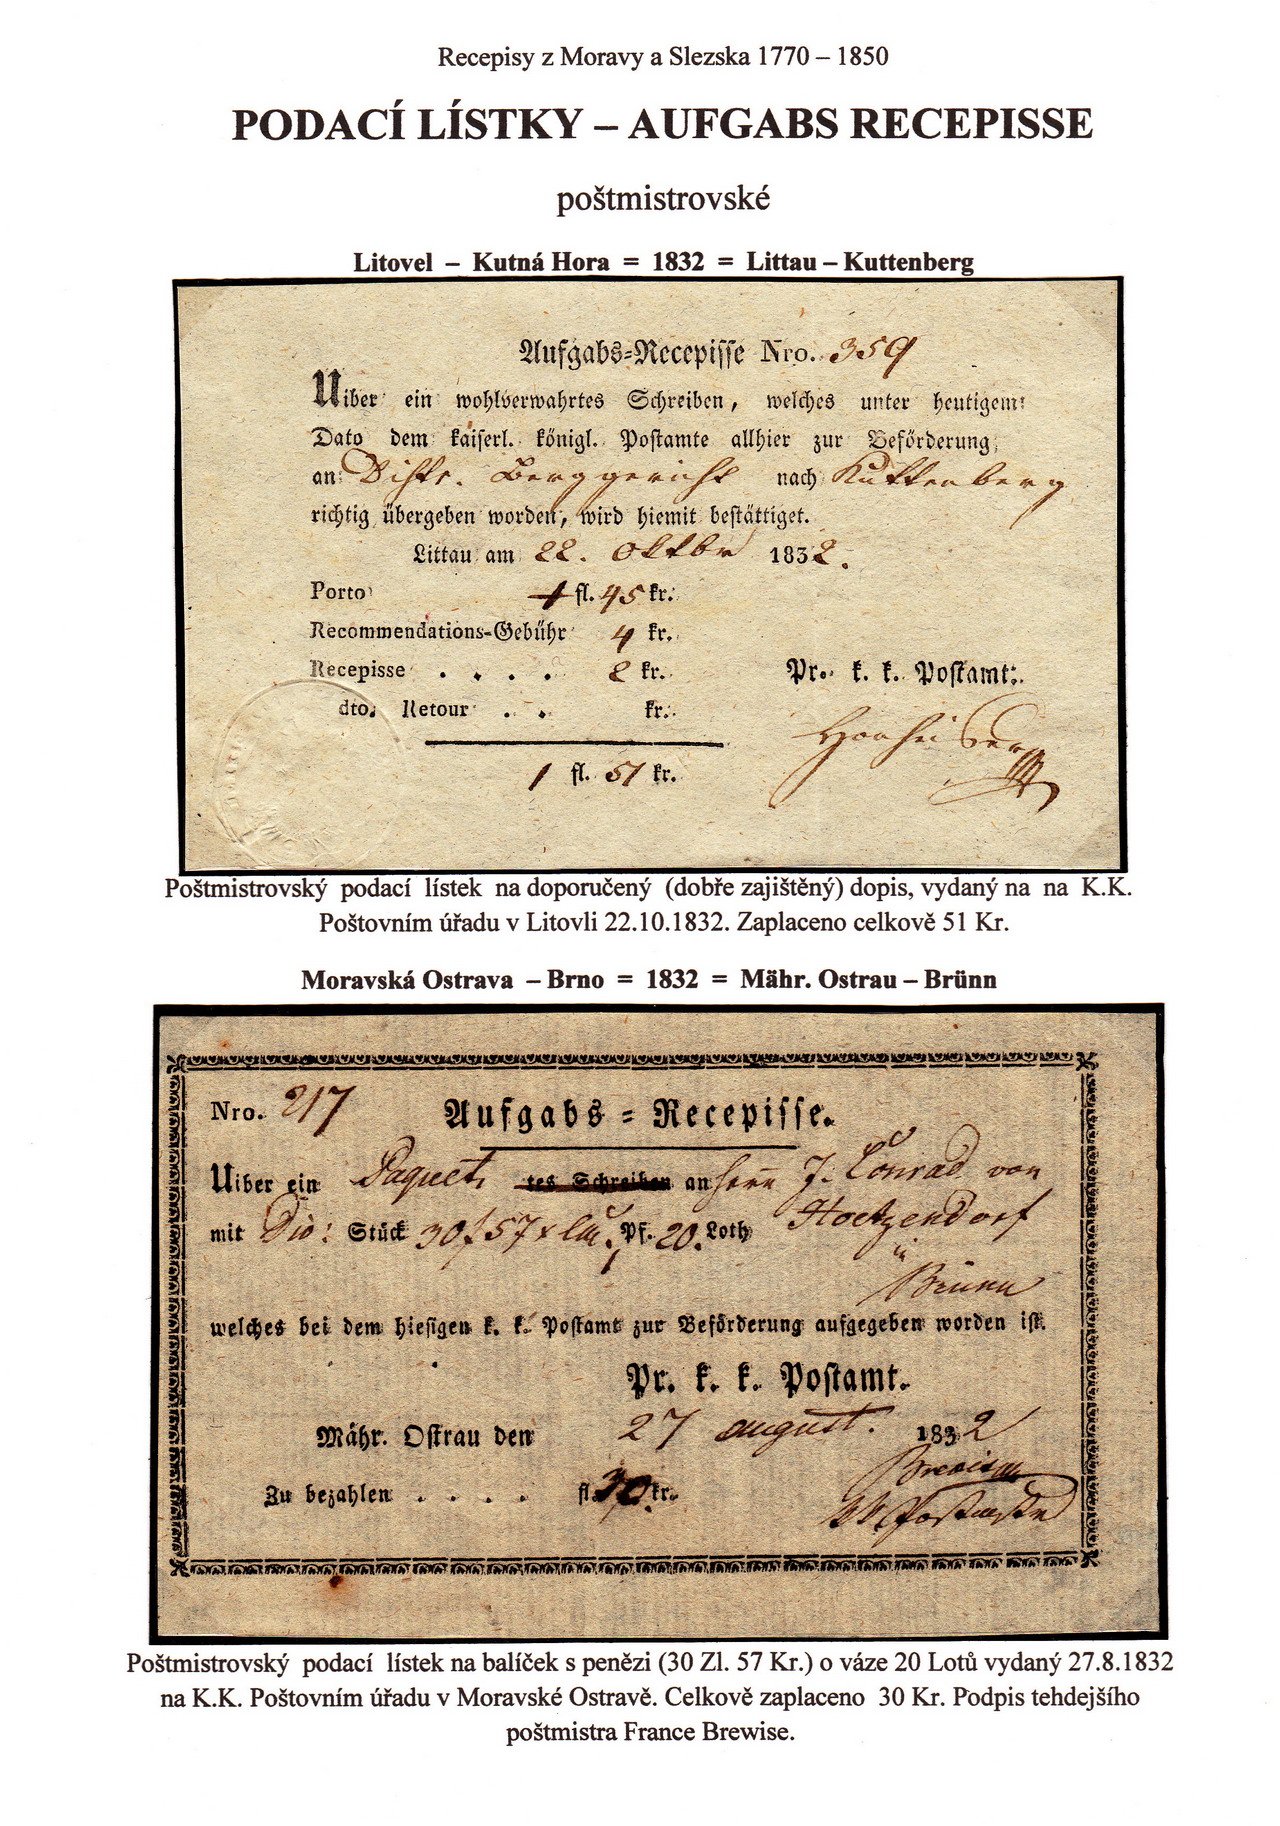 Recepisy z Moravy a Slezska 1770 – 1850
PODACÍ LÍSTKY – AUFGABS RECEPISSE
poštmistrovské
Litovel – Kutná Hora = 1832 = Littau – Kuttenberg
Aufgabs-Recepisse Nro. 359
Uiber ein wohlverwahrtes Schreiben, welches unter heutigem
Dato dem kaiserl. königl. Postamte allhier zur Beförderung
an Distr. Berggericht nach Kuttenberg
richtig übergeben worden, wird hiemit bestättiget.
Littau am 22. Oktbr 1832.
Porto 1 fl. 45 kr.
Recommendations-Gebühr 4 kr.
Recepisse . . . . 2 kr.
Pr. k. k. Postamt.
dto. Retour . . kr.
1 fl. 51 kr.
Poštmistrovský podací lístek na doporučený (dobře zajištěný) dopis, vydaný na na K.K.
Poštovním úřadu v Litovli 22.10.1832. Zaplaceno celkově 51 Kr.
Moravská Ostrava – Brno = 1832 = Mähr. Ostrau – Brünn
Nro. 217 Aufgabs-Recepisse.
Uiber ein Paquet tes Schreiben an Herrn J. Conrad von
mit Stück 30 f 57 x Pf. 20. Loth Hoetzendorf
in
Brünn
welches bei dem hiesigen k. k. Postamt zur Beförderung aufgegeben worden ist.
Pr. k. k. Postamt.
Mähr. Ostrau den 27 august. 1832
Zu bezahlen . . . . fl. 30 kr.
Poštmistrovský podací lístek na balíček s penězi (30 Zl. 57 Kr.) o váze 20 Lotů vydaný 27.8.1832
na K.K. Poštovním úřadu v Moravské Ostravě. Celkově zaplaceno 30 Kr. Podpis tehdejšího
poštmistra France Brewise.